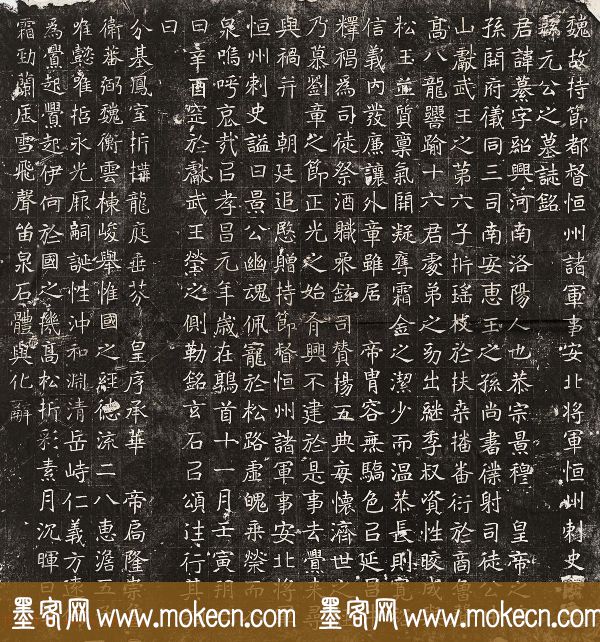 魏故持節都督恒州諸軍事安北將軍恒州刺史
縣元公之墓誌銘
君諱纂字紹興河南洛陽人也恭宗景穆　皇帝之
孫開府儀同三司南安惠王之孫尚書僕射司徒公
山獻武王之第六子折瑤枝於扶桑播番衍於商
髙八龍器踰十六君處弟之幼出継季叔資性晈成
松王並質稟氣開凝奪霜金之潔少而温恭長則寬
信義內發廉讓外章雖居　帝胄容無驕色召延昌
釋褐為司徒祭酒職乘鉉司賛揚五典每懷濟世之
乃慕劉章之節正光之始有興不建於是事去舋来尋
與禍并　朝廷追愍贈持節督恒州諸軍事安北將
恒州刺史謚曰景公幽魂佩寵於松路虛魄乘榮而
泉嗚呼哀哉召孝昌元年歲在鶉首十一月壬寅朔
日辛酉窆於獻武王塋之側勒銘玄石召頌徃行其
曰
分基鳳室折摸龍庭垂芬　皇序承華　帝扃隆
衛蕃弼魏衡雲棟峻舉惟國之経德流二八惠澹五
唯懿唯招永光厥嗣誕性沖和淵清岳峙仁義方遠
為舋起舋起伊何於國之機髙松折彩素月沉暉
霜勁蘭凮雪飛聲留泉石體與化辭
墨客网 www.mokecn.com 墨客网 www.mokecn.com